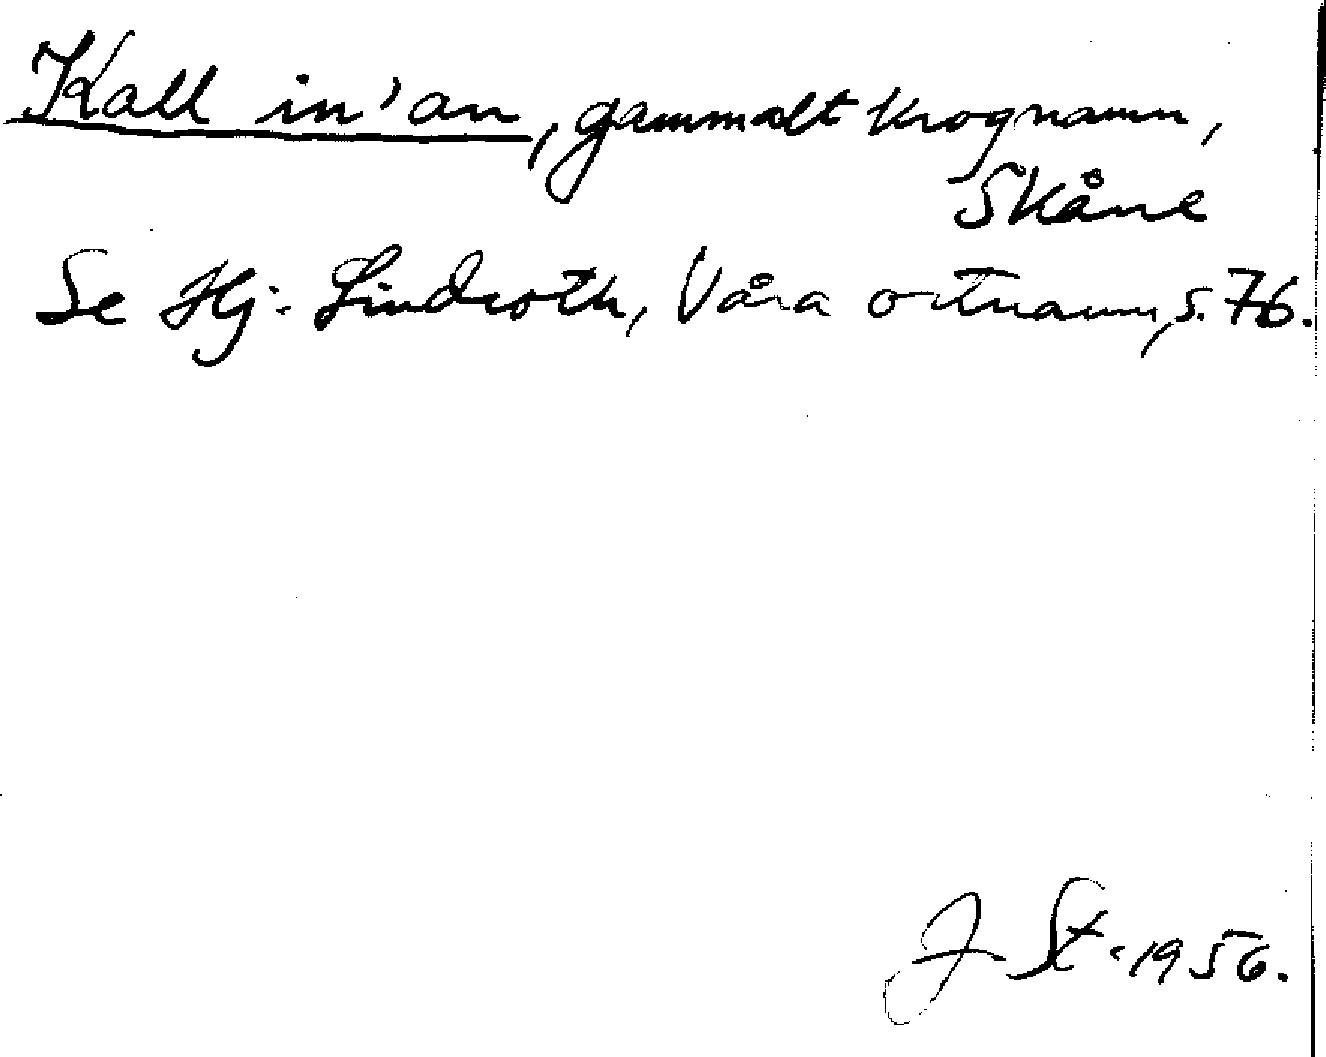 Kall in'an, gammalt krognamn,
Skåne
Se Hj. Lindroth, Våra ortnamn, s. 76.
J St. 1956.